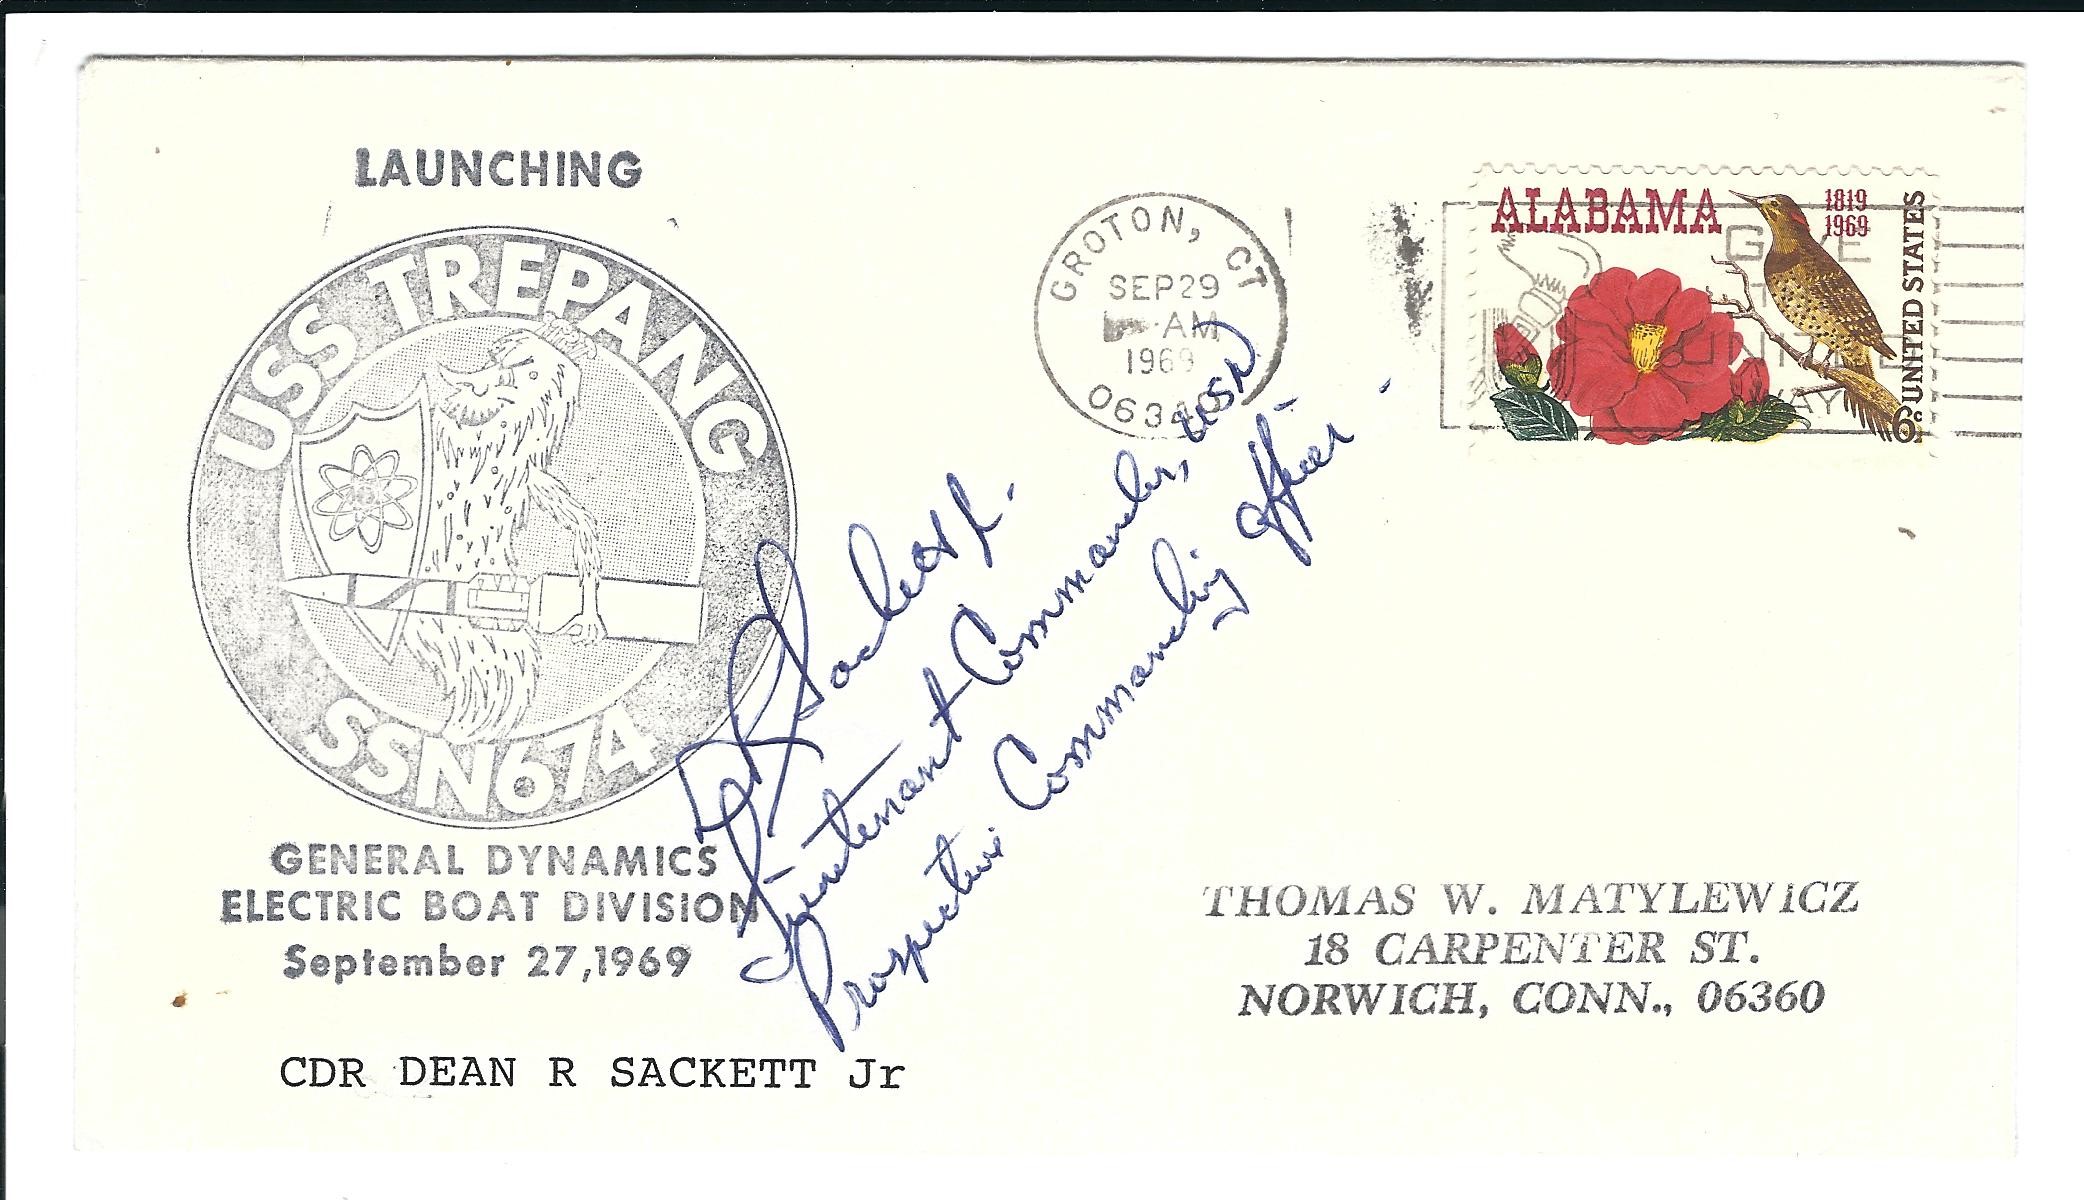 LAUNCHING
USS TREPANG
SSN674
GENERAL DYNAMICS
ELECTRIC BOAT DIVISION
September 27, 1969
CDR DEAN R SACKETT Jr
D R Sackett Jr.
Lieutenant Commander, USN
Prospective Commanding Officer.
GROTON, CT
SEP 29
AM
1969
06340
ALABAMA
1819
1969
UNITED STATES
6c
GIVE
THE
UNITED
WAY
THOMAS W. MATYLEWICZ
18 CARPENTER ST.
NORWICH, CONN., 06360